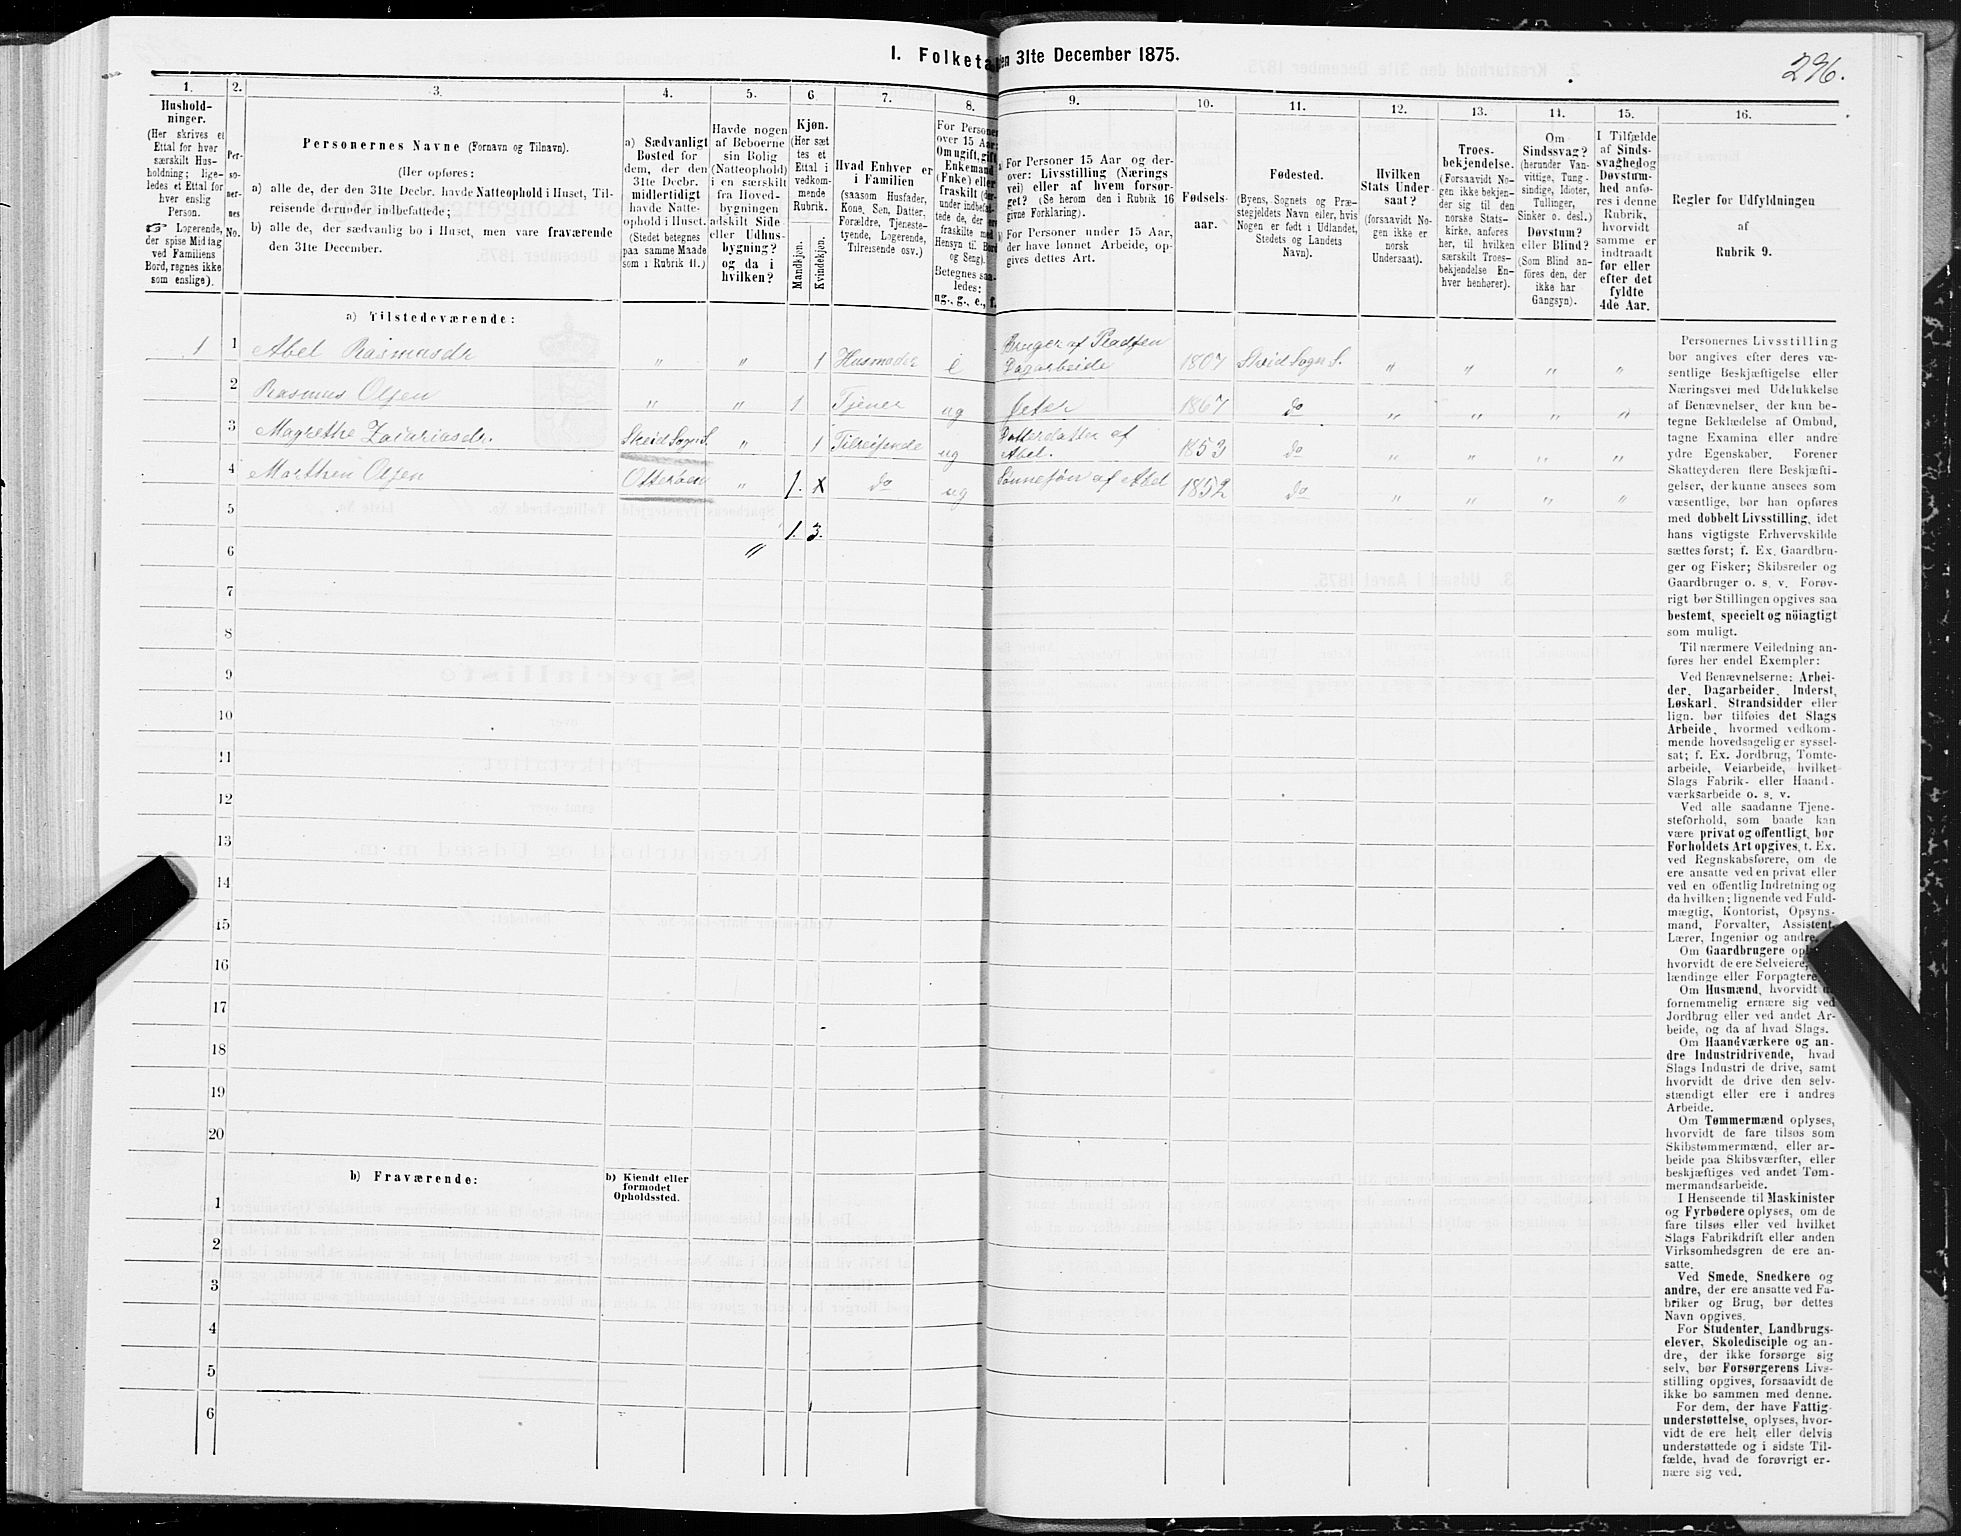 I. Folketa
den 31te December 1875.
296.
1.
2.
3.
4.
5.
6
7.
8.
9.
10.
11.
12.
13.
14.
15.
16.
Hushold-
ninger.
(Her skrives et
Ettal for hver
særskilt Hus-
holdning; lige-
ledes et Ettal for
hver enslig
Person.
☞ Logerende,
der spise Middag
ved Familiens
Bord, regnes ikke
som enslige).
Per-
so-
ner-
nes
No.
Personernes Navne (Fornavn og Tilnavn).
(Her opføres:
a) alle de, der den 31te Decbr. havde Natteophold i Huset, Til-
reisende derunder indbefattede;
b) alle de, der sædvanlig bo i Huset, men vare fraværende
den 31te December.
a) Sædvanligt
Bosted for
dem, der den
31te Decbr.
midlertidigt
havde Natte-
ophold i Huset.
(Stedet betegnes
paa samme Maade
som i Rubrik 11.)
Havde nogen
af Beboerne
sin Bolig
(Natteophold)
i en særskilt
fra Hoved-
bygningen
adskilt Side
eller Udhus-
bygning?
og da i
hvilken?
Kjøn.
(Her sæt
tes et
Ettal i
vedkom-
mende
Rubrik.
Mandkjøn.
Kvindekjøn.
Hvad Enhver er
i Familien
(saasom Husfader,
Kone, Søn, Datter,
Forældre, Tjeneste-
tyende, Logerende,
Tilreisende osv.)
For Personer
over 15 Aar:
Om ugift, gift
Enkemand
(Enke) eller
fraskilt (der-
under indbefat-
tede de, der ere
fraskilte med
Hensyn til Bord
og Seng).
Betegnes saa-
ledes:
ug., g., e., f.
a) For Personer 15 Aar og der-
over: Livsstilling (Nærings
vei) eller af hvem forsør-
get? (Se herom den i Rubrik 16
givne Forklaring).
b) For Personer under 15 Aar,
der have lønnet Arbeide, op-
gives dettes Art.
Fødsels-
aar.
Fødested.
(Byens, Sognets og Præ-
stegjeldets Navn eller, hvis
Nogen er født i Udlandet,
Stedets og Landets
Navn).
Hvilken
Stats Under-
saat?
(forsaavidt No-
gen ikke er
norsk
Undersaat).
Troes-
bekjendelse.
(Forsaavidt No-
gen ikke bekjen-
der sig til den
norske Stats-
kirke, anføres
her, til hvilken
særskilt Troes-
bekjendelse En-
hver henhører).
Om
Sindssvag?
(herunder Van-
vittige, Tung-
sindige, Idioter,
Tullinger,
Sinker o. desl.)
Døvstum?
eller Blind?
(Som Blind an-
føres den, der
ikke har
Gangsyn).
I Tilfælde
af Sinds-
svaghed og
Døvstum-
hed anfø-
res i denne
Rubrik,
hvorvidt
samme er
indtraadt
før eller
efter det
fyldte
4de Aar.
Regler for Udfyldningen
af
Rubrik 9.
a) Tilstedeværende:
1 1 Abel Rasmusdr " " 1 Husmoder e Bruger af Pladsen
Dagarbeide 1807 Skeid Sogn S. " " " "
2 Rasmus Olsen " " 1 Tjener ug Gjeter 1867 do " " " "
3 Magrethe Zacariasdr. Skeid Sogn S. " 1 Tilreisende ug Datterdatter af
Abel. 1853 do " " " "
4 Marthen Olsen Otterøen " 1. x do ug Sønnesøn af Abel 1852 do " " " "
5
1. 3.
6 "
7
8
9
10
11
12
13
14
15
16
17
18
19
20
b) Fraværende:
b) Kjendt eller
formodet
Opholdssted.
1
2
3
4
5
6
Personernes Livsstilling
bør angives efter deres væ-
sentlige Beskjæftigelse eller
Næringsvei med Udelukkelse
af Benævnelser, der kun be-
tegne Beklædelse af Ombud,
tagne Examina eller andre
ydre Egenskaber. Forener
Skatteyderen flere Beskjæfti-
gelser, der kunne ansees som
væsentlige, bør han opføres
med dobbelt Livsstilling, idet
hans vigtigste Erhvervskilde
sættes først; f. Ex. Gaardbru-
ger og Fisker; Skibsreder og
Gaardbruger o. s. v. Forøv-
rigt bør Stillingen opgives saa
bestemt, specielt og nöiagtigt
som muligt.
Til nærmere Veiledning an-
føres her endel Exempler:
Ved Benævnelserne: Arbei-
der, Dagarbeider, Inderst,
Løskarl, Strandsidder eller
lign. bør tilføies det Slags
Arbeide, hvormed vedkom-
mende hovedsagelig er syssel-
sat; f. Ex. Jordbrug, Tomte-
arbeide, Veiarbeide, hvilket
Slags Fabrik- eller Haand-
værksarbeide o. s. v.
Ved alle saadanne Tjene-
steforhold, som baade kan
være privat og offentligt, bør
Forholdets Art opgives, t. Ex.
ved Regnskabsførere, om de
ere ansatte ved en privat eller
ved en offentlig Indretning og
da hvilken; lignende ved Fuld-
mægtig, Kontorist, Opsyns-
mand, Forvalter, Assistent,
Lærer, Ingeniør og andre.
Om Gaardbrugere opl
hvorvidt de ere Selveiere,
lændinge eller Forpagtere.
Om Husmænd, hvorvidt
fornemmelig ernære sig ved
Jordbrug eller ved andet Ar-
beide, og da af hvad Slags.
Om Haandværkere og an-
dre Industridrivende, hvad
Slags Industri de drive, samt
hvorvidt de drive den selv-
stændigt eller ere i andres
Arbeide.
Om Tømmermænd oplyses,
hvorvidt de fare tilsøs som
Skibstømmermænd, eller ar-
beide paa Skibsværfter, eller
beskjæftiges ved andet Tøm-
mermandsarbeide.
I Henseende til Maskinister
og Fyrbødere oplyses, om de
fare tilsøs eller ved hvilket
Slags Fabrikdrift eller anden
Virksomhedsgren de ere an-
satte.
Ved Smede, Snedkere og
andre, der ere ansatte ved Fa-
briker og Brug, bør dettes
Navn opgives.
For Studenter, Landbrugs-
elever, Skoledisciple og an-
dre, der ikke forsørge sig
selv, bør Forsørgerens Livs-
stilling opgives, forsaavidt de
ikke bo sammen med denne.
For dem, der have Fattig-
understøttelse, oplyses, hvor-
vidt de ere helt eller delvis
understøttede og i sidste Til-
fælde, hvad de forøvrigt er-
nære sig ved.